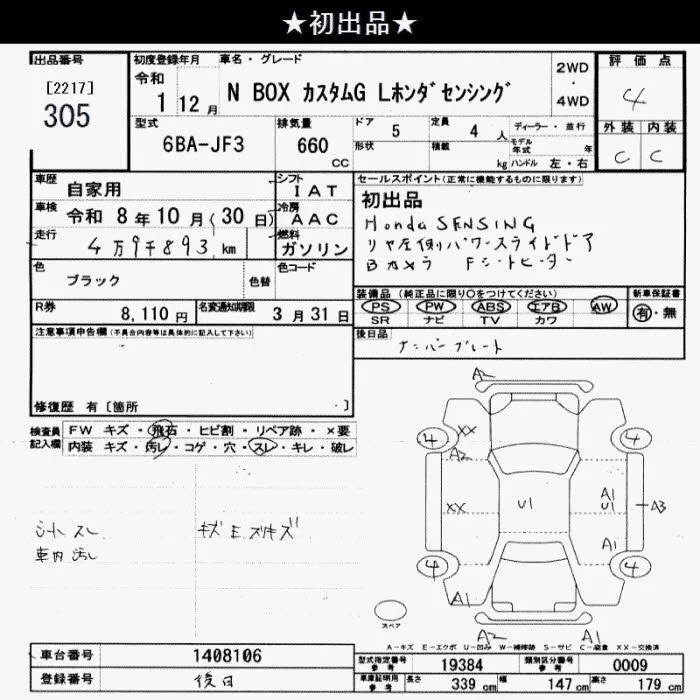 ★初出品★
出品番号
[2217]
305
初度登録年月
令和
1 12月
車名・グレード
N BOX カスタムG Lホンダセンシング
2WD
・
4WD
評価点
4
外装 内装
C C
型式
6BA-JF3
排気量
660
CC
ドア 5
定員 4 人
形状
積載 kg
ディーラー・並行
モデル年式
ハンドル 左・右
車歴 自家用
シフト IAT
車検 令和 8年 10月(30日)
冷房 AAC
走行 4万9千893 km
燃料 ガソリン
色 ブラック
色替
色コード
R券 8,110円
名変通知期限 3月31日
セールスポイント(正常に機能するものに限ります)
初出品
Honda SENSING
リヤ左側パワースライドドア
Bカメラ Fシートヒーター
装備品 (純正品に限り○をつけてください)
PS PW ABS エアB AW
SR ナビ TV カワ
新車保証書
有・無
後日品
ナンバープレート
注意事項申告欄(不具合内容等は具体的に記入して下さい)
修復歴 有[箇所 ]
検査員記入欄
FW キズ・飛石・ヒビ割・リペア跡・×要
内装 キズ・汚レ・コゲ・穴・スレ・キレ・破レ
シートスレ
車内汚レ
A2
4 XX 4
A2
XX U1 A1
U1
A3
A1
4 4
A1
A2 A1
スペア
A-キズ E-エクボ U-凹み W-補修跡 S-サビ C-腐食 XX-交換済
車台番号 1408106
登録番号 後日
型式指定番号
参考
19384
類別区分番号
参考
0009
車庫証明用
参考
長さ 339 cm 幅 147 cm 高さ 179 cm